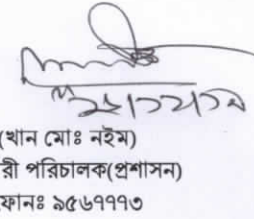 (খান মোঃ নইম)
রী পরিচালক(প্রশাসন)
ফোনঃ ৯৫৬৭৭৭৩